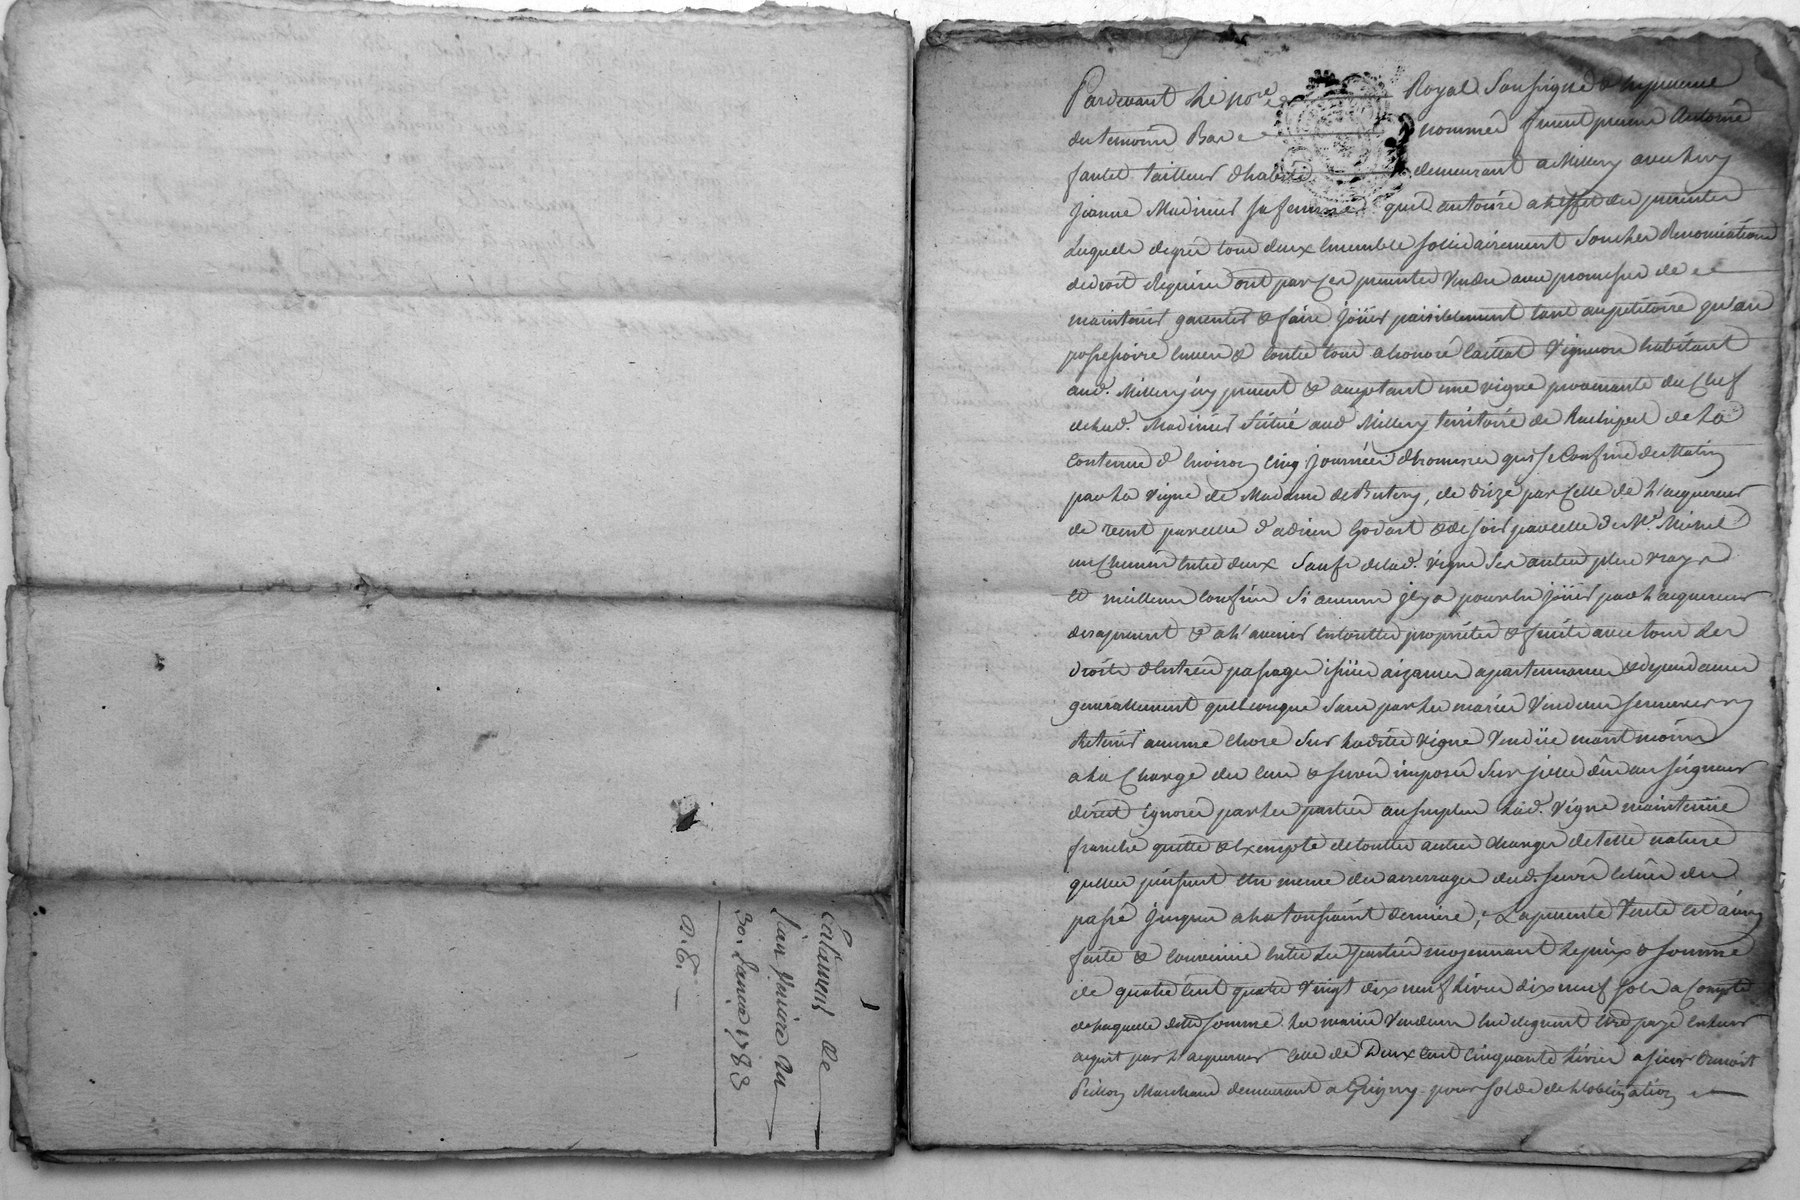 Testament de
sieur Verriere du
30. Janvier 1783
a. E.
Pardevant Le no.re Royal Soussigné & en presence
des temoins Bas nommés furent presens Antoine
fautel tailleur d'habits demeurant a Millery avec
Jeanne Madinier sa femme quil autorise a l'effet des presentes
Lesquels de gré tous deux Ensemble sollidairement sous les Renonciations
de droit Requises ont par Ces presentes Vendu avec promesses de
maintenir garentir & faire Joüir paisiblement tant au petitoire qu'au
possessoire Envers & Contre tous a honoré Caillat Vigneron habitant
aud. Millery icy present & aceptant une vigne provenante du Chef
de lad. Madinier Située aud Millery territoire de de La
Contenue d'Environ Cinq Journées d'hommes qui se Confine de Matin
par La Vigne de Madame de, de Bize par Celle de L'acquereur
de vent par celle d'adrien Godart & de soir par celle de Mr. Michel
un Chemin entre deux Sauf de lad. vigne Ses autres plus vrays
& meilleurs Confins Si aucuns il y a pour En Joüir par L'acquereur
des apresent & a L'avenir En toutte proprieté & fruits avec tous Les
droits d'Entrées passages issües aizances apartenances & dependances
generallement quelconques Sans par Les mariés Vendeurs se reserver ny
Retenir aucune chose Sur Laditte vigne Vendüe neantmoins
a La Charge des Cens & servis imposés Sur jcelle dûs au seigneur
direct ignorés par Les parties au surplus Lad. Vigne maintenüe
franche quitte & Exempte de touttes autres Charges de telle nature
quelles puissent Etre meme des arrerages dud. servis Echus du
passé Jusques a La toussaint derniere; La presente Vente est ainsy
faite & Convenue Entre Les parties moyennant Le prix & somme
de quatre Cent quatre Vingt dix neuf Livres dix neuf sols a Compte
de Laquelle ditte somme Les mariés Vendeurs Indiquent Etre payé En Leur
acquit par L'acquereur Celle de Deux Cent Cinquante Livres a sieur Benoist
Peillon Marchand demeurant a Grigny pour Solde de L'obligation